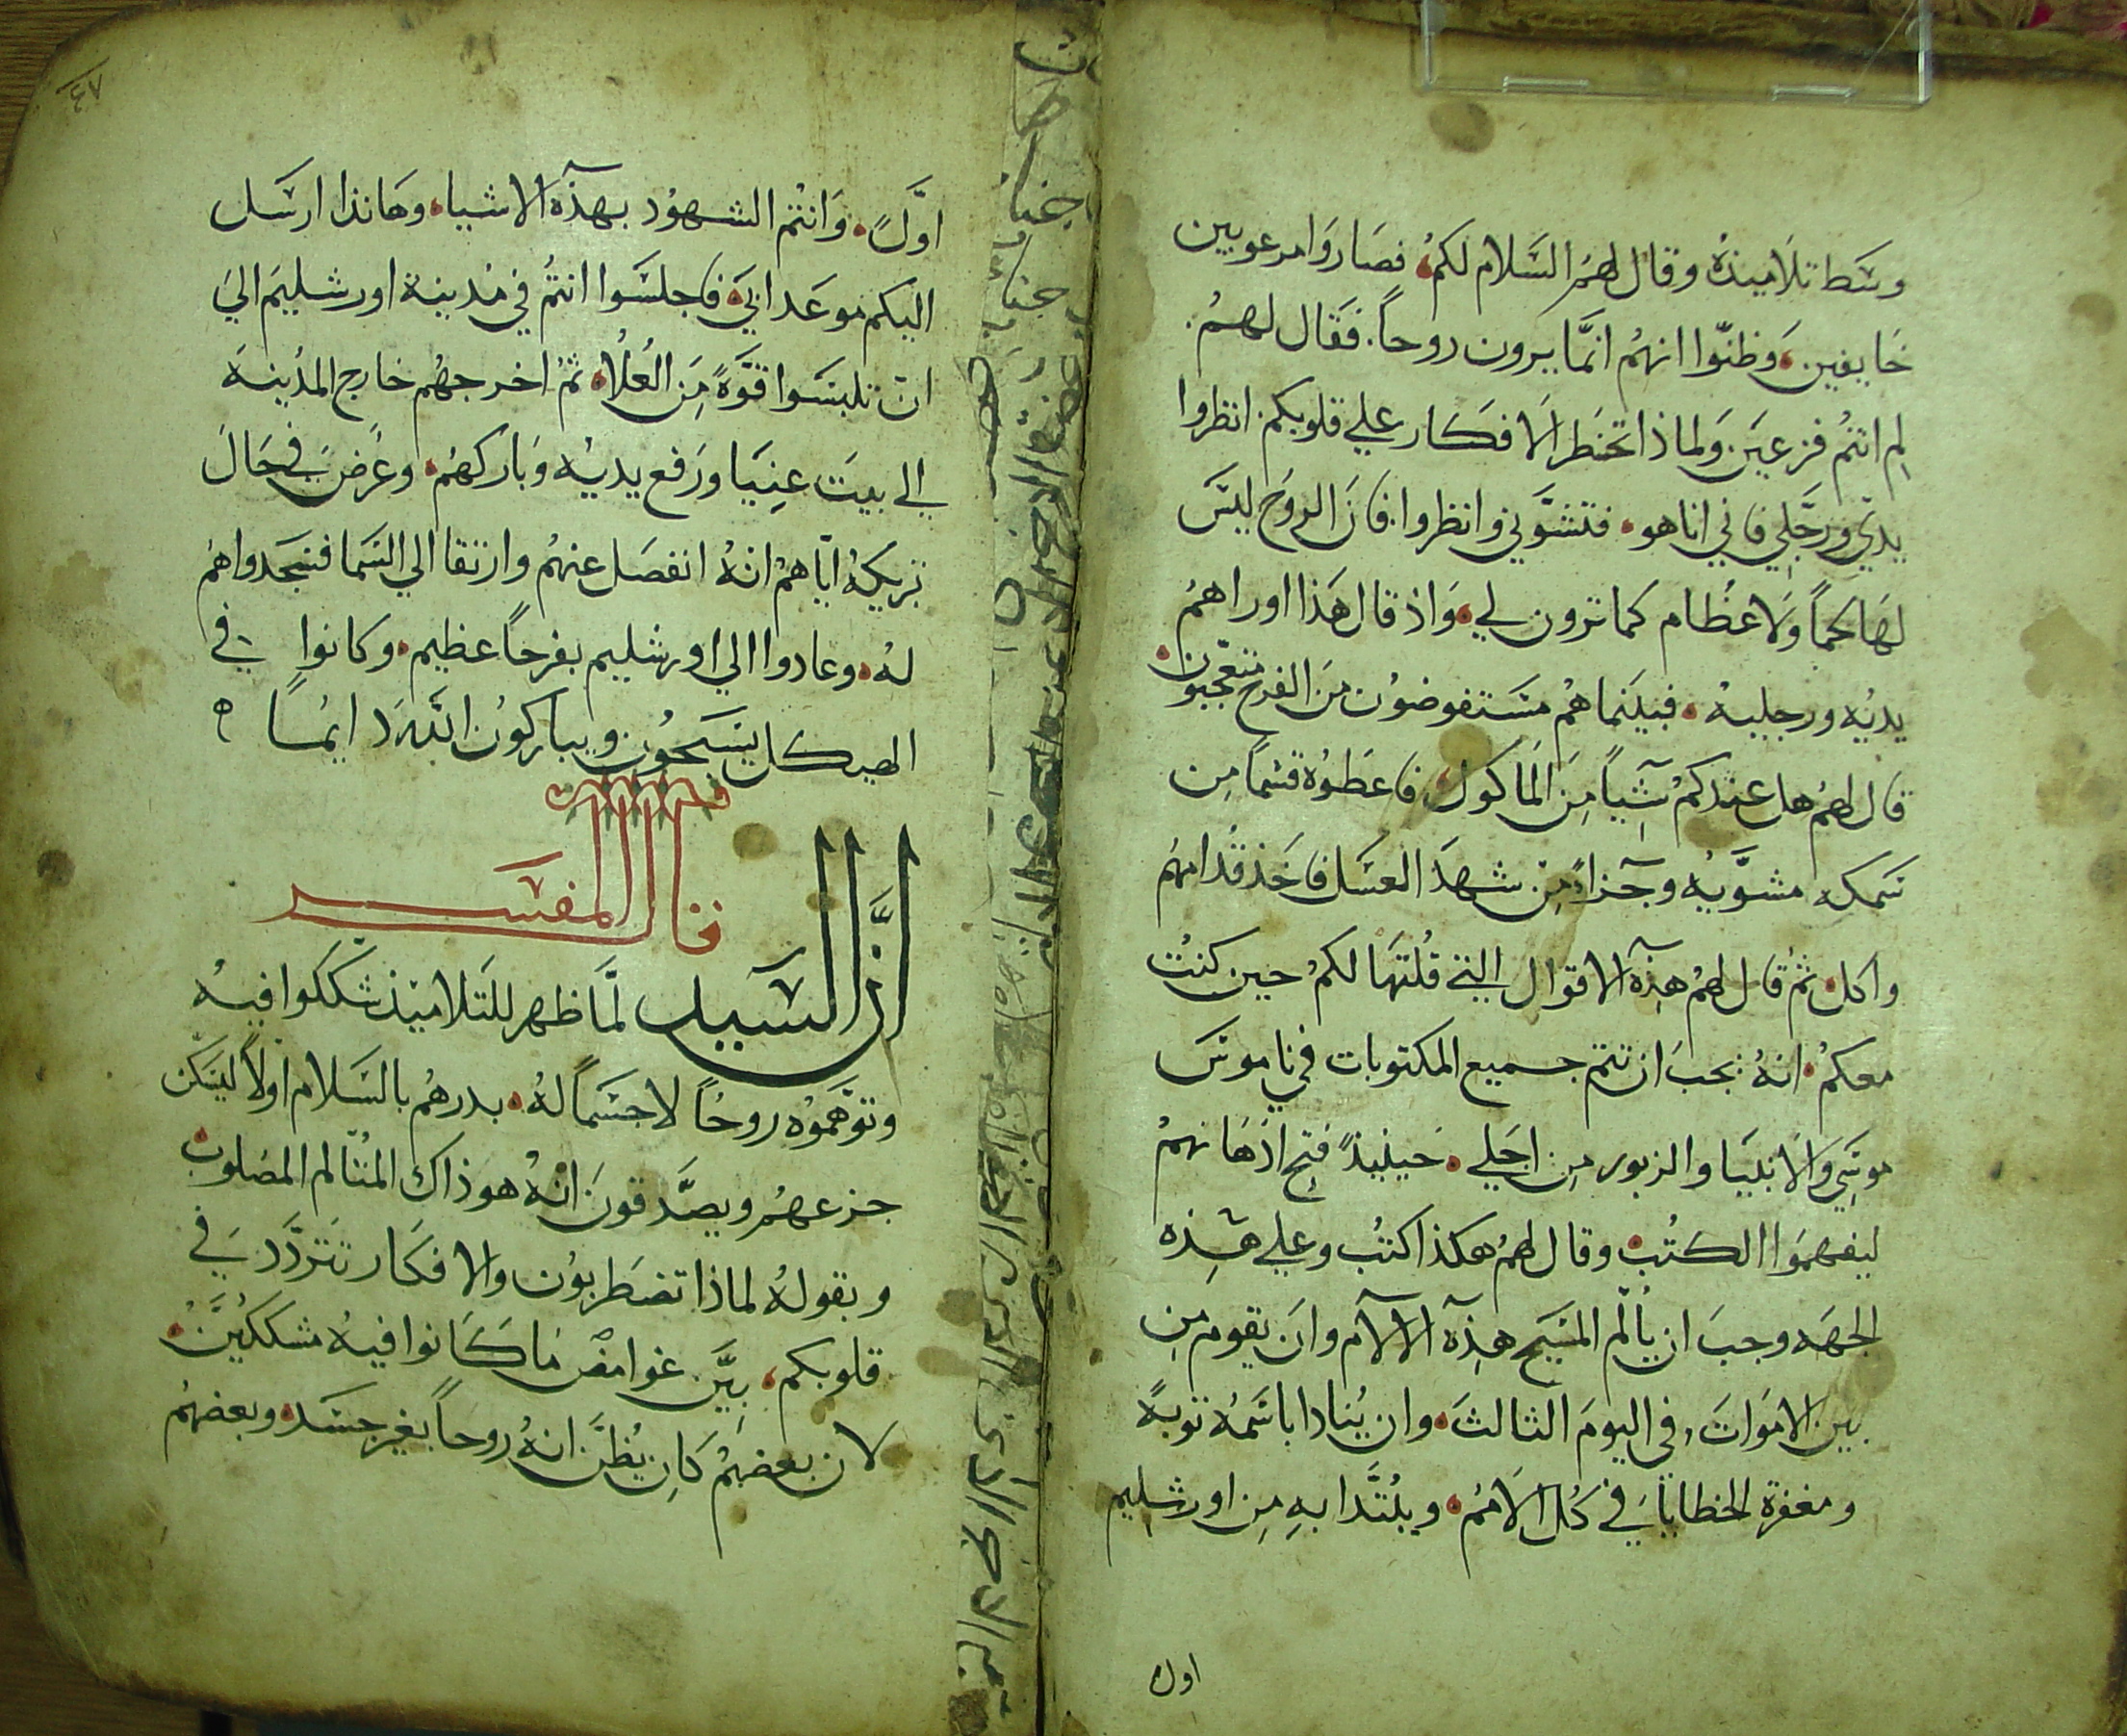 وسَط تلاميذهُ وقال لهمُ السَلام لكمُ، فصَاروَا مرعوبين
خَايفين، وَظنّوا انهمُ انمَّا يرون روحاً. فقَال لهمُ.
لِم انتمُ فزعينَ. وَلماذا تخَطر الافكار علي قلوبكم. انظروا
يديَّ ورجَلي فاني انا هو، فتشوَّني وانظروا. فانَ الروَح ليسَ
لهَا لحَماً وَلا عظُام كما ترون لي، وَاذ قال هَذا اوراهمُ
يديُه ورجليهُ، فبيَنما همُ مسَتفوضوُن منَ الفرح متعجبون.
قال لهمُ هل عندكمُ شَيياً مِنَ الماكول، فاعَطوُهُ قسَماً مِن
سَمكه مشوَّيهُ وجَزاءً مِن شهدَ العسَل فاخَذ قُدامهمُ
واكل، ثمُ قال لهمُ هذِهَ الاقوال التي قُلتهَا لكمُ حين كنتُ
معكمُ، انهُ يجبَ ان تتم جميع المكتوبات في ناموسَ
موسَي وَالانبيَا والزبور مِن اجَلي، حَينيذٍ فتح اذهَانهمُ
ليفهموَا الكتُب، وقال لهمُ هكذا كتُب وعلي هَذِه
الجهَه وجبَ ان يألم المسَيح هذِهَ الالام وانَ يقوم مِن
بين الاموَاتَ، في اليومَ الثالثَ، وان يُنادا باسَمهُ توبةً
ومغفرةِ الخطايَا في كُل الامَمُ، ويبُتَّدا بهِ مِن اورشليم
اول
٤٧
اوَّلً، وَانتمُ الشهوُد بهذهَ الاشيا، وهَانذا ارسَل
اليكم موعَد ابيَ، فاجلسَوا انتمُ في مُدينة اورشليمَ اليَ
انَ تلبسَوا قوَّةً مِنَ العُلاُ، ثمُ اخرجهُم خارج المدُينهَ
الي بيتَ عِنيَا ورَفع يديهُ وَباركهُم، وعَرَضَ في حَالَ
تبريكهُ ايّاهمُ انهُ انفصَل عنهمُ وارتقا الي السَما فسَجَدوا همُ
لهُ، وعادوا الي اورشليم بفرحاً عظيم، وكانوا في
الهيكل يسَبحوُن ويباركوُن اللّهَ دَايمُاً ه
فقال المفسَر
انَّ السَيد لمَّا ظهر للتَلاميذ شَككوا فيهُ
وتوَّهموُهُ روحُاً لاجسَماً لهُ، بدرهمُ بالسَلام اولاً ليسَكن
جزعهمُ ويصَّدقونَ انهُ هو ذاكَ المتُالم المصَلوب،
وبقولهُ لماذا تضَطربوُن والافكَار تترَدَّد في
قلوبكم، بيَّنَ غوامضَ مَا كَانوا فيهُ مشككيُنَ،
لان بعضَهمُ كَان يُظَّن انهُ روحَاً بغير جسَد، وبعضهمُ